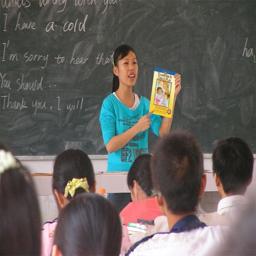 What's wrong with you?
I have a cold
I'm sorry to hear that
You should...
Thank you, I will
ha